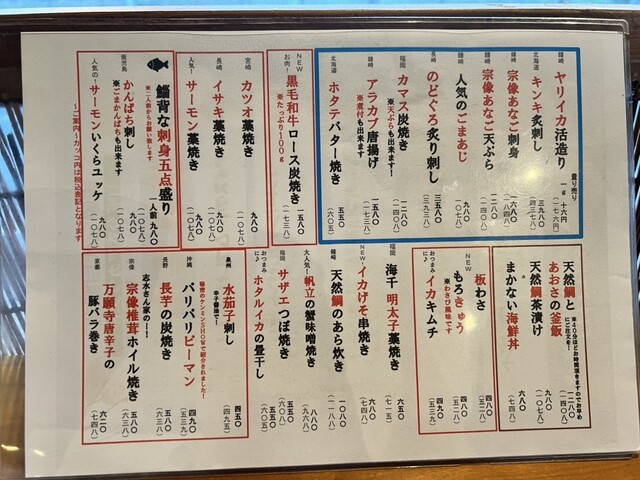 鐘崎
ヤリイカ活造り
量り売り
1g 十六円
(一七六円)
北海道
キンキ炙刺し
三九八〇
(四三七八)
鐘崎
宗像あなご刺身
一六八〇
(一八四八)
鐘崎
宗像あなご天ぷら
一二八〇
人気のごまあじ
九八〇
(一〇七八)
長崎
のどぐろ炙り刺し
三五八〇
(三九三八)
福岡
カマス炭焼き
※天ぷらも出来ます!
鐘崎
アラカブ唐揚げ
※煮付も出来ます!
一五八〇
(一七三八)
北海道
ホタテバター焼き
五五〇
(六〇五)
NEW
お肉!
黒毛和牛ロース炭焼き
※たっぷり100g
一五八〇
(一七三八)
宮崎
カツオ藁焼き
九八〇
(一〇七八)
長崎
イサキ藁焼き
九八〇
(一〇七八)
人気!
サーモン藁焼き
九八〇
(一〇七八)
鯔背な刺身五点盛り
※二人前からお願い致します
一人前 九八〇
(一〇七八)
鹿児島
かんぱち刺し
※ごまかんぱちも出来ます
九八〇
(一〇七八)
人気の!
サーモンいくらユッケ
九八〇
(一〇七八)
~ご案内~カッコ内は税込表記となります
天然鯛と
あおさの釜飯
※40分ほどお時間頂きますのでお早めにご注文を!
一二八〇
(一四〇八)
天然鯛茶漬け
九八〇
(一〇七八)
まかない海鮮丼
六八〇
(七四八)
板わさ
四八〇
(五二八)
NEW
もろきゅう
※わさび風味です
四八〇
(五二八)
おつまみに♪
イカキムチ
四九〇
(五三九)
福岡
海千 明太子藁焼き
六五〇
(七一五)
NEW!
イカげそ串焼き
六八〇
(七四八)
鐘崎
天然鯛のあら炊き
一〇八〇
(一一八八)
大人気!
帆立の蟹味噌焼き
八八〇
(九六八)
福岡
サザエつぼ焼き
五五〇
(六〇五)
おつまみに♪
ホタルイカの畳干し
五五〇
(六〇五)
泉州
水茄子刺し
辛子醤油で!
四五〇
(四九五)
秘密のケンミンSHOWで紹介されました!
沖縄
バリバリピーマン
四九〇
(五三九)
長野
長芋の炭焼き
五八〇
(六三八)
志水さん家のー!
宗像
宗像椎茸ホイル焼き
五八〇
(六三八)
京都
万願寺唐辛子の
豚バラ巻き
六二〇